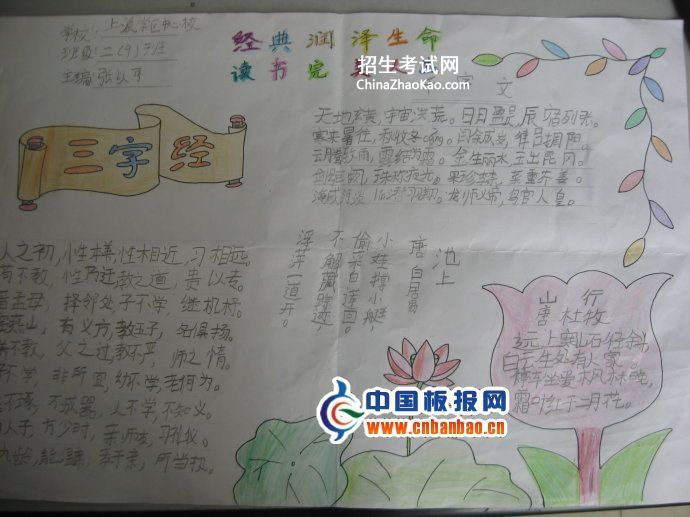 学校:上凌学区中心校
班级:二(9)班
主编:张以可
经典润泽生命
读书完
招生考试网
ChinaZhaoKao.com
字文
三字经
天地玄黄,宇宙洪荒。日月盈昃,辰宿列张。
寒来暑往,秋收冬藏。闰余成岁,律吕调阳。
云腾致雨,露结为霜。金生丽水,玉出昆冈。
剑号巨阙,珠称夜光。果珍李柰,菜重芥姜。
海咸河淡,鳞潜羽翔。龙师火帝,鸟官人皇。
人之初,性本善,性相近,习相远。
不教,性乃迁,教之道,贵以专。
孟母,择邻处,子不学,断机杼。
燕山,有义方,教五子,名俱扬。
不教,父之过,教不严,师之惰。
不学,非所宜,幼不学,老何为。
不琢,不成器,人不学,不知义。
人子,方少时,亲师友,习礼仪。
九龄,能温席,孝于亲,所当执。
池上
唐 白居易
小娃撑小艇,
偷采白莲回。
不解藏踪迹,
浮萍一道开。
山行
唐 杜牧
远上寒山石径斜,
白云生处有人家。
停车坐爱枫林晚,
霜叶红于二月花。
中国板报网
www.cnbanbao.cn